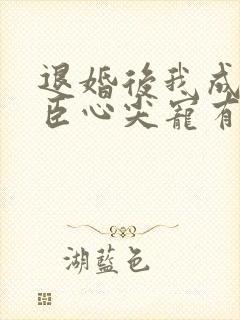 退婚後我成
臣心尖寵有
湖藍色